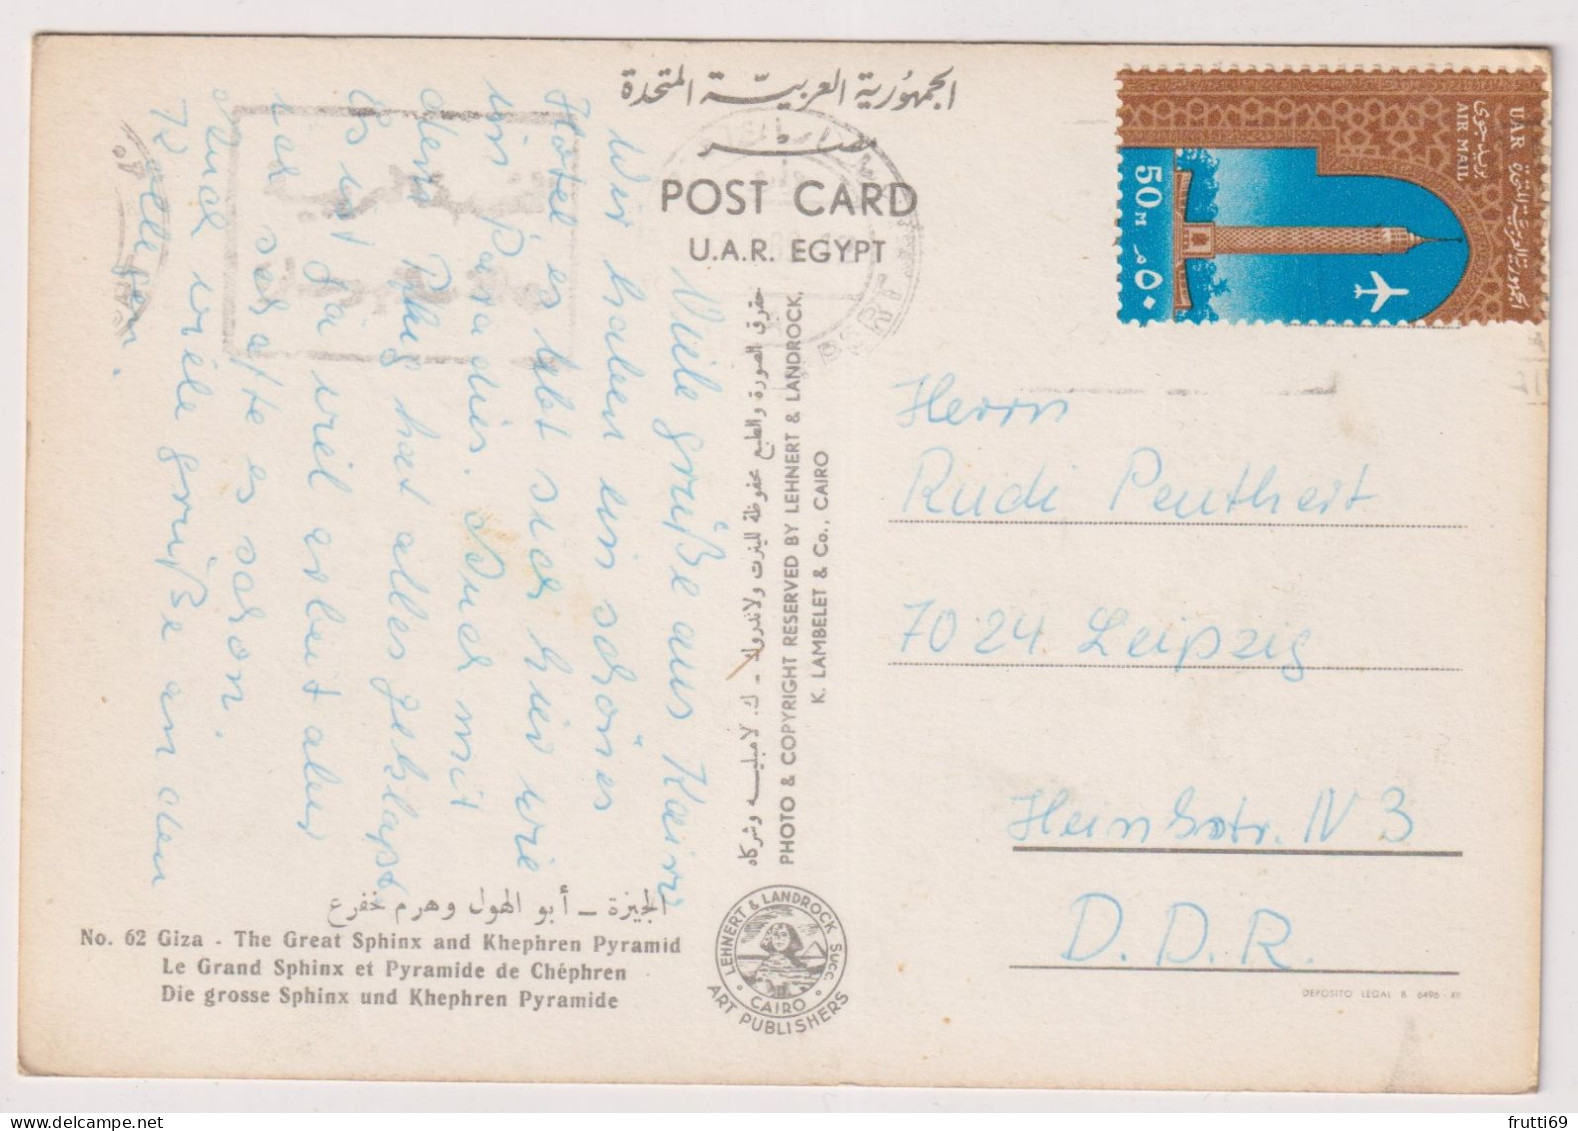 الجمهورية العربية المتحدة
مصر
POST CARD
U.A.R. EGYPT
UAR الجمهورية العربية المتحدة
AIR MAIL بريد جوى
50 M ٥٠ م
Viele Grüße aus Kairo
Wir haben ein schönes
Hotel es lebt sich hier wie
im Paradies. Auch mit
dem Flug hat alles geklappt
Es ist ja viel Arbeit aber
schafte es schon.
Und viele Grüße an dem
Kollegen.
حقوق الصورة والطبع محفوظة للينرت ولاندروك - ك. لامبليه وشركاه
PHOTO & COPYRIGHT RESERVED BY LEHNERT & LANDROCK,
K. LAMBELET & Co., CAIRO
Herrn
Rudi
7024 Leipzig
IV 3
D.D.R.
الجيزة - أبو الهول وهرم خفرع
No. 62 Giza - The Great Sphinx and Khephren Pyramid
Le Grand Sphinx et Pyramide de Chéphren
Die grosse Sphinx und Khephren Pyramide
LEHNERT & LANDROCK SUCC. CAIRO
ART PUBLISHERS
DEPOSITO LEGAL B 6496 - XII
frutti69